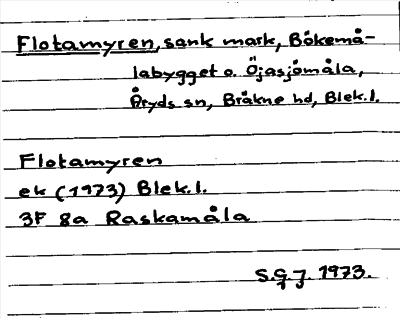 Flotamyren, sank mark, Bökemå-
labygget o. Öjasjömåla,
Åryds sn, Bräkne hd, Blek.l.
Flotamyren
ek (1973) Blek.l.
3F 8a Raskamåla
S.G.J. 1973.